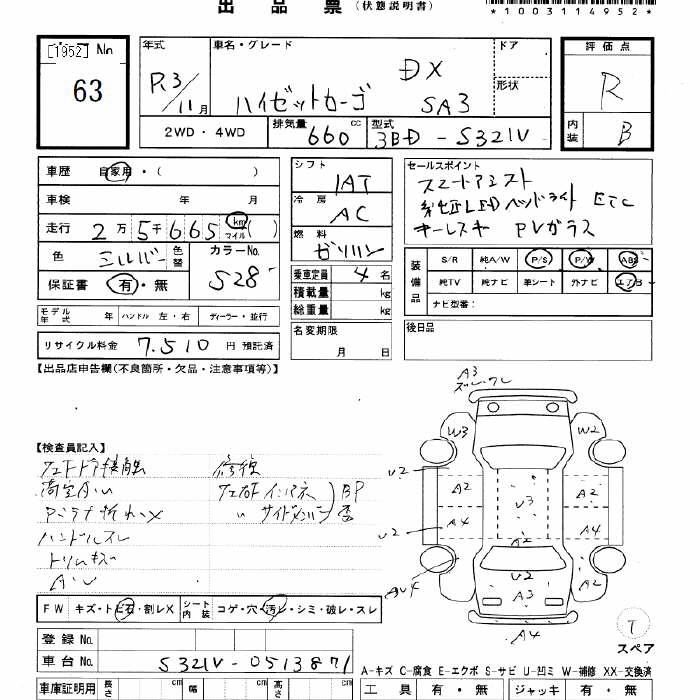 出品票 (状態説明書)
*1003114952*
[1952] No 63
年式 R3/11月
車名・グレード DX
ハイゼットカーゴ SA3
ドア
形状
評価点 R
内装 B
2WD・4WD 排気量 660 cc 型式 3BD-S321V
車歴 自家用・( )
車検 年 月
走行 2万5千665 km マイル ( )
色 シルバー 色替 カラーNo. S28
保証書 有・無
モデル年式 年 ハンドル 左・右 ディーラー・並行
リサイクル料金 7,510 円 預託済
シフト IAT
冷房 AC
燃料 ガソリン
乗車定員 4名
積載量 kg
総重量 kg
名変期限 月 日
セールスポイント
スマートアシスト
純正LEDヘッドライト ETC
キーレスキー PVガラス
装備品 S/R 純A/W P/S P/W ABS
純TV 純ナビ 革シート 外ナビ エアB
ナビ型番:
後日品
【出品店申告欄(不良箇所・欠品・注意事項等)】
【検査員記入】
修復
ハンドルスレ
トリムキズ
サイドメンバ
BP
FW キズ・トビ石・割レX シート内装 コゲ・穴・汚レ・シミ・破レ・スレ
登録No.
車台No. S321V-0513871
車庫証明用 長さ cm 幅 cm 高さ cm
A3
W3 W2
U2
A2 U3 A2
U2 A4 A4
A2
U2
A3 A2
A4
T
スペア
A-キズ C-腐食 E-エクボ S-サビ U-凹ミ W-補修 XX-交換済
工具 有・無 ジャッキ 有・無